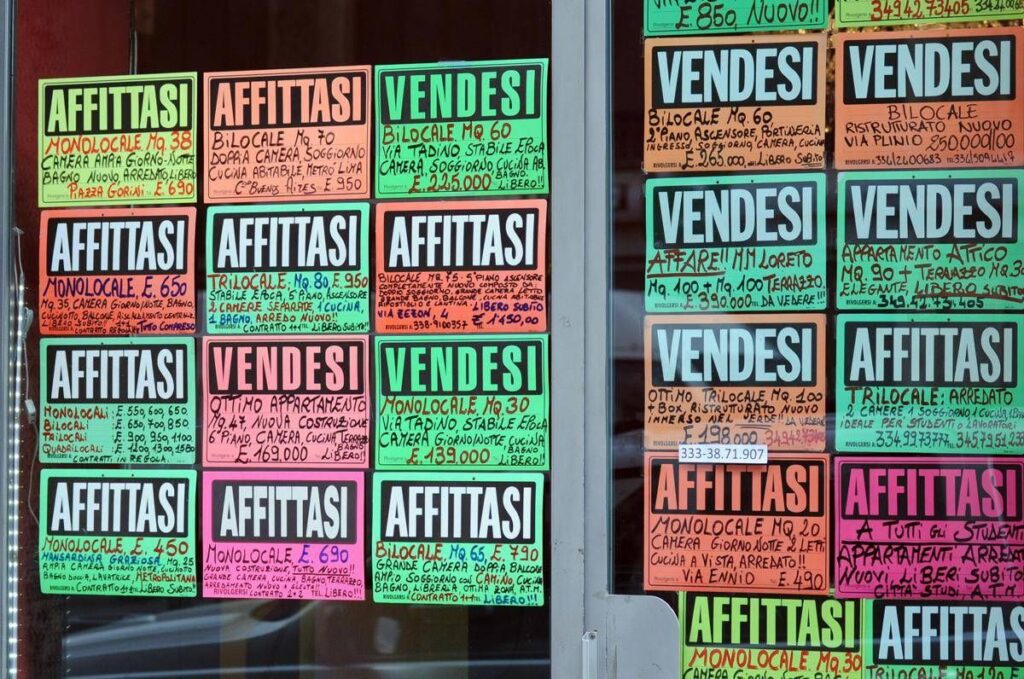 AFFITTASI
MONOLOCALE MQ. 38
CAMERA AMPIA GIORNO-NOTTE
BAGNO NUOVO, ARREDATO LIBERO
PIAZZA GORINI E. 690
AFFITTASI
BILOCALE MQ. 70
DOPPIA CAMERA, SOGGIORNO
CUCINA ABITABILE, METRO' LIMA
C.SO BUENOS AIRES E. 950
VENDESI
BILOCALE MQ. 60
VIA TADINO STABILE EPOCA
CAMERA, SOGGIORNO, CUCINA AB.
BAGNO.
E. 225.000 LIBERO!!
AFFITTASI
MONOLOCALE, E. 650
MQ. 35, CAMERA GIORNO/NOTTE, BAGNO,
CUCINOTTO, BALCONE, ARIA CENTRALIZ.
LIBERO SUBITO!! TUTTO COMPRESO
AFFITTASI
TRILOCALE, MQ. 80, E. 950
STABILE EPOCA, 5° PIANO, ASCENSORE
2 CAMERE SEPARATE, 1 CUCINA,
1 BAGNO, ARREDO NUOVO!!
RIVOLGERSI A CONTRATTO 1+1 TEL. LIBERO SUBITO!!
AFFITTASI
BILOCALE MQ. 75 - 5° PIANO ASCENSORE
COMPLETAMENTE NUOVO COMPOSTO DA
GRANDE BAGNO, BALCONE, CUCINA ABITABILE
RIPOSTIGLIO E CANTINA LIBERO SUBITO
VIA ZEZON, 4 E. 1150,00
RIVOLGERSI A 338-9100357
AFFITTASI
MONOLOCALI: E. 550, 600, 650
BILOCALI: E. 650, 700, 850
TRILOCALI: E. 900, 950, 1100
QUADRILOCALI: E. 1200, 1300, 1580
RIVOLGERSI A CONTRATTI IN REGOLA...
VENDESI
OTTIMO APPARTAMENTO
MQ. 47, NUOVA COSTRUZIONE
6° PIANO, CAMERA, CUCINA, TERRAZZO
BAGNO
E. 169.000 LIBERO!!
VENDESI
MONOLOCALE, MQ. 30
VIA TADINO, STABILE EPOCA
CAMERA GIORNO/NOTTE CUCINA
BAGNO
E. 139.000 LIBERO!!
AFFITTASI
MONOLOCALE, E. 450
MANSARDINA GRAZIOSA, MQ. 25
AMPIA CAMERA GIORNO/NOTTE, CUCINOTTO
BAGNO DOCCIA, LAVATRICE, METROPOLITANA
CONTRATTO 1+1 TEL. LIBERO SUBITO!!
AFFITTASI
MONOLOCALE E. 690
NUOVA COSTRUZIONE, TUTTO NUOVO!!
GRANDE CAMERA, CUCINA, BAGNO TERRAZZO,
RIVOLGERSI A CONTRATTO 2+2 TEL. LIBERO!!!
AFFITTASI
BILOCALE, MQ. 65, E. 790
GRANDE CAMERA DOPPIA, BALCONE
AMPIO SOGGIORNO CON CAMINO, CUCINA
LIBRERIA, OTTIMA ZONA, A.T.M.
RIVOLGERSI A CONTRATTO 1+1 TEL. LIBERO!!!
E. 850 NUOVO!!
3494273405
VENDESI
BILOCALE MQ. 60
2° PIANO, ASCENSORE, PORTINERIA
INGRESSO, SOGGIORNO, CAMERA, CUCINA
E. 265.000 LIBERO SUBITO
VENDESI
BILOCALE
RISTRUTTURATO NUOVO
VIA PLINIO 250.000/00
RIVOLGERSI A
VENDESI
AFFARE!! MM LORETO
MQ. 100 + MQ. 100 TERRAZZO
E. 390.000 DA VEDERE!!
VENDESI
APPARTAMENTO ATTICO
MQ. 90 + TERRAZZO MQ. 30
ELEGANTE, LIBERO SUBITO
RIVOLGERSI A 349.42.73.405
VENDESI
OTTIMO TRILOCALE MQ. 100
+ BOX, RISTRUTTURATO NUOVO
IMMERSO NEL "VERDE"!! DA VEDERE
E. 198.000
333-38.71.907
AFFITTASI
TRILOCALE: ARREDATO
2 CAMERE 1 SOGGIORNO 1 CUCINA 1 B
IDEALE PER STUDENTI O LAVORATORI
AFFITTASI
MONOLOCALE MQ. 20
CAMERA GIORNO NOTTE 2 LETTI
CUCINA A VISTA, ARREDATO!!
VIA ENNIO E. 490
AFFITTASI
A TUTTI GLI STUDENTI
APPARTAMENTI ARREDATI
NUOVI, LIBERI SUBITO
CITTA' STUDI, A.T.M.
AFFITTASI
MONOLOCALE MQ. 30
CAMERA GIORNO/NOTTE
AFFITTASI
TRILOCALE MQ. 120